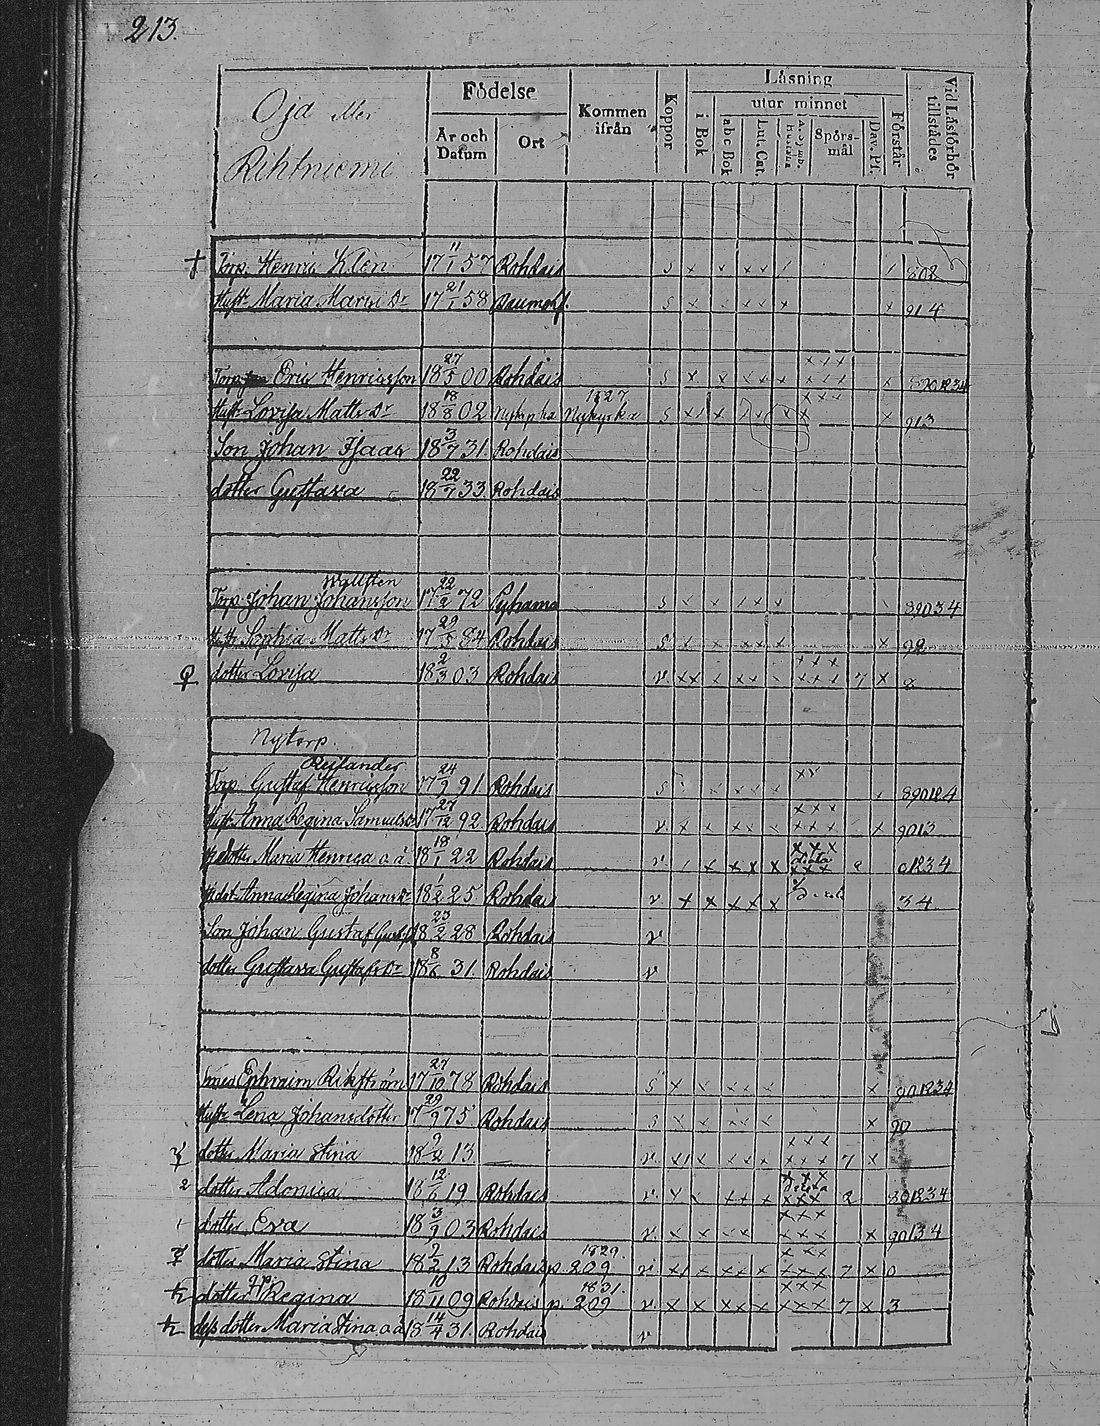 213.
Oja eller
Rihtniemi
Födelse
År och Datum
Ort
Kommen ifrån
Koppor
Läsning
utur minnet
i Bok
abc Bok
Lut. Cat.
Spörsmål
Dav. Ps.
Förstår
Vid Läsförhör tillstädes
† Torp. Henric Klen 17 11/1 57 Rohdais s 802
Hustr Maria Marci Dr 17 21/1 58 s 914
Eric Henricsson 18 27/5 00 Rohdais s 8901234
Hustr Lovisa Matts Dr 18 18/8 02 Nykyrka 1827 s 913
Son Johan Isaac 18 3/7 31. Rohdais
dotter Gustava 18 22/7 33 Rohdais
Wallsten
Torp Johan Johansson 17 22/2 72 Pyhama s 89034
Hustr Sophia Matts Dr 17 29/5 84 Rohdais s 92
dotter Lovisa 18 2/3 03 Rohdais v 7 8
Nytorp.
Relander
Torp. Gustaf Henricsson 17 24/9 91 Rohdais s
Hustr Anna Regina Samuels Dr 17 27/12 92 Rohdais v 9013
dotter Maria Henrica o.ä. 18 18/1 22 Rohdais v 01234
Anna Regina Johans Dr 18 1/2 25 Rohdais v 34
Son Johan Gustaf 18 23/2 28 Rohdais v
dotter Gustava Gustafs Dr 18 8/6 31. Rohdais v
Ephraim Rikström 17 27/10 78 Rohdais s 901234
Hustr Lena Johansdotter 17 29/9 75 Rohdais s 90
dotter Maria Stina 18 9/2 13 v 7
2 dotter Adonica 18 12/6 19 Rohdais v 2 801234
dotter Eva 18 3/9 03 Rohdais v 90134
dotter Maria Stina 18 9/2 13 Rohdais 1829 p. 209 v 7 0
dotter Regina 18 10/11 09 Rohdais 1831. p. 209 v 7 3
dess dotter Maria Stina o.ä. 18 14/4 31. Rohdais v